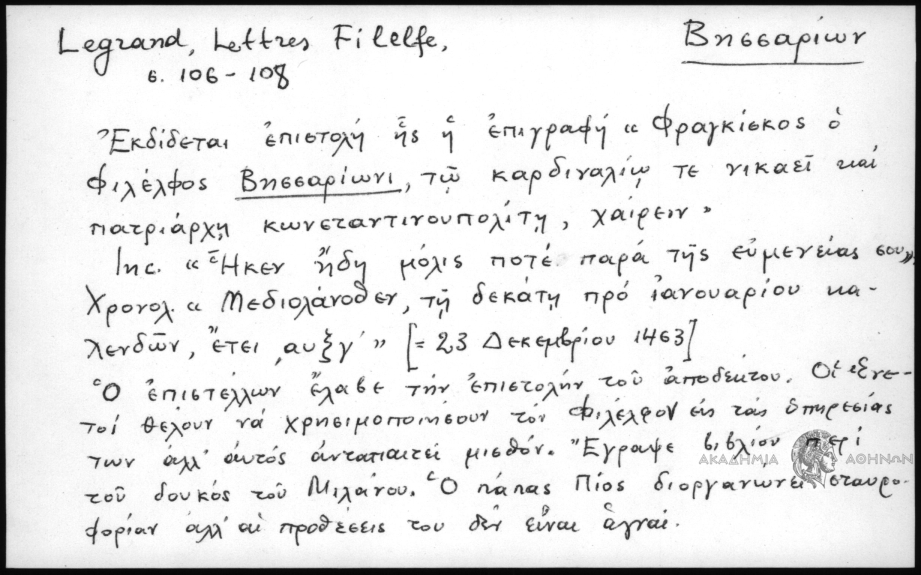 Legrand, Lettres Filelfe,
Βησσαρίων
σ. 106-108
Ἐκδίδεται ἐπιστολή ἧς ἡ ἐπιγραφή « Φραγκίσκος ὁ
Φιλέλφος Βησσαρίωνι, τῷ καρδιναλίῳ τε νικαεῖ καί
πατριάρχῃ κωνσταντινουπολίτῃ, χαίρειν »
Inc. « Ἧκεν ἤδη μόλις ποτέ παρά τῆς εὐμενείας σου »,
Χρονολ. « Μεδιολάνοθεν, τῇ δεκάτῃ πρό ἰανουαρίου κα-
λενδῶν, ἔτει ͵αυξγ´ » [= 23 Δεκεμβρίου 1463]
Ὁ ἐπιστέλλων ἔλαβε τήν ἐπιστολήν τοῦ ἀποδέκτου. Οἱ Ἑνε-
τοί θέλουν νά χρησιμοποιήσουν τόν Φιλέλφον εἰς τάς ὑπηρεσίας
των ἀλλ' αὐτός ἀνταπαιτεῖ μισθόν. Ἔγραψε βιβλίον περί
τοῦ δουκός τοῦ Μιλάνου. Ὁ πάπας Πίος διοργανώνει σταυρο-
φορίαν ἀλλ' αἱ προθέσεις του δέν εἶναι ἁγναί.
ΑΚΑΔΗΜΙΑ ΑΘΗΝΩΝ